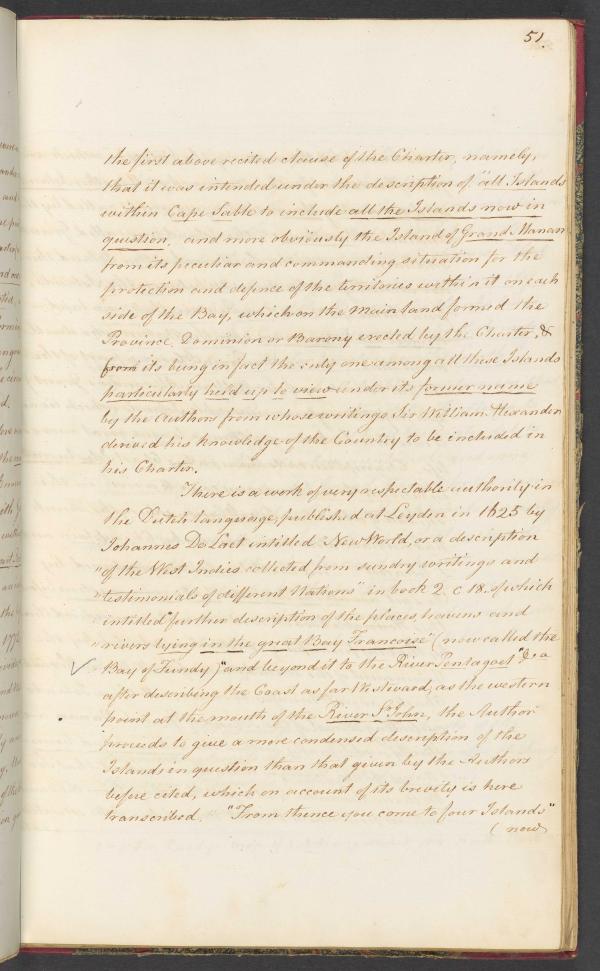 51.
the first above recited clause of the Charter, namely,
that it was intended under the description of "all Islands
within Cape Sable to include all the Islands now in
question, and more obviously the Island of Grand Manan
from its peculiar and commanding situation for the
protection and defence of the territories within it on each
side of the Bay, which on the Main land formed the
Province, Dominion or Barony erected by the Charter, &
from its being in fact the only one among all these Islands
particularly held up to view under its former name
by the Authors from whose writings Sir William Alexander
derived his knowledge of the Country to be included in
his Charter.
There is a work of very respectable authority in
the Dutch language, published at Leyden in 1625 by
Johannes De Laet intitled New World, or a description
"of the West Indies collected from sundry writings and
"testimonials of different Nations" in book 2. c 18. of which
intitled "further description of the places, havens and
"rivers lying in the great Bay Francoise" (now called the
Bay of Fundy) "and beyond it to the River Pentagoet" &c a
after describing the Coast as far Westward, as the western
point at the mouth of the River St John, the Author
proceeds to give a more condensed description of the
Islands in question than that given by the Authors
before cited, which on account of its brevity is here
transcribed. "From thence you come to four Islands"
(now